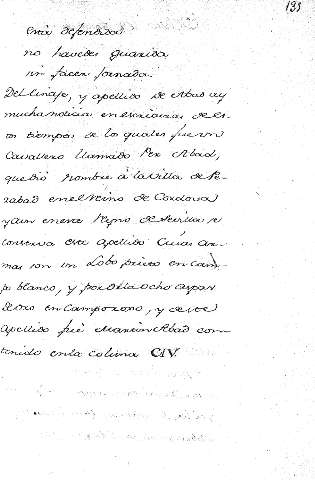 133
esta defendida
no havedes guarida
sin facer jornada.
Del linaje, y apellido de Abad ay
mucha noticia en escrituras de es-
tos tiempos de los quales fue un
Cavallero llamado Per Abad,
que dió nombre à la Villa de Pe-
rabad en el Reino de Cordova
y aun en este Reyno de Sevilla se
conserva este apellido Cuias ar-
mas son un Lobo prieto en cam-
po blanco, y por orla ocho aspas
de oro en campo roxo, y de este
apellido fué Martin Abad con-
tenido en la coluna CIV.